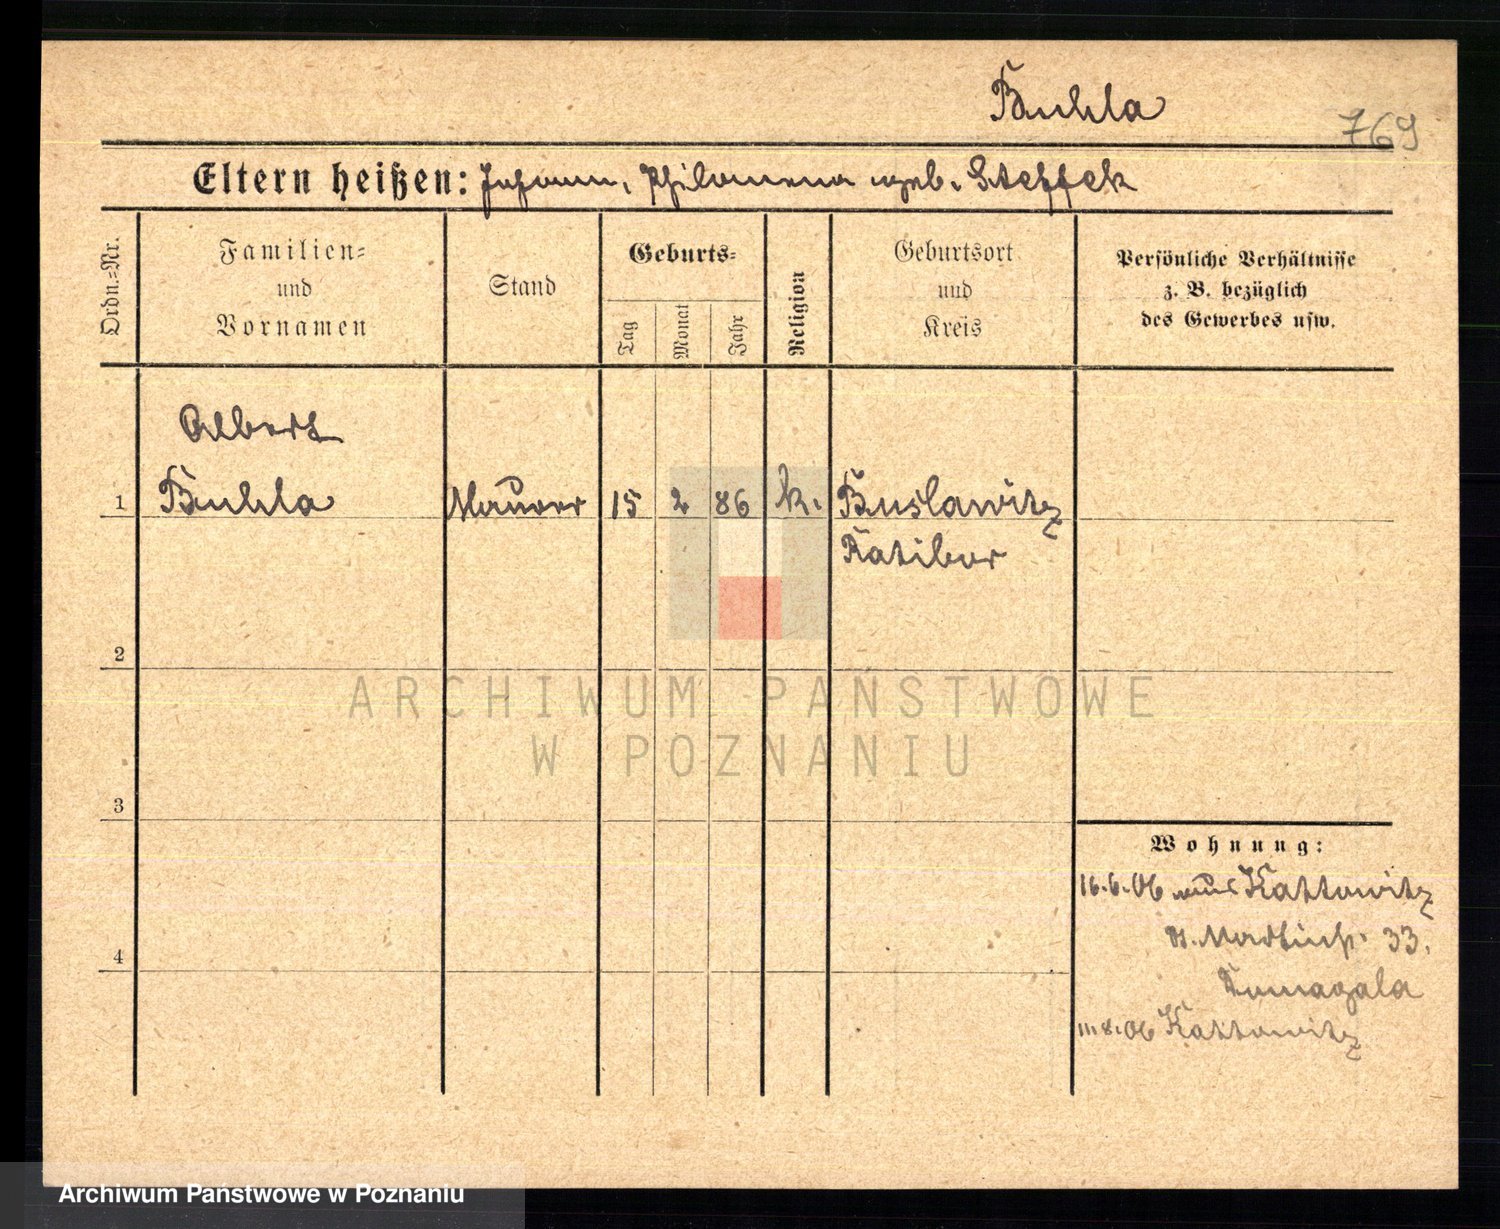 Buhla
769
Eltern heißen: Johann, Philomena geb. Steffek
Ordn.=Nr.
Familien=
und
Vornamen
Stand
Geburts=
Tag
Monat
Jahr
Religion
Geburtsort
und
Kreis
Persönliche Verhältnisse
z. B. bezüglich
des Gewerbes usw.
Albert
1 Buhla Maurer 15 2 86 k. Buslawitz
Ratibor
2
ARCHIWUM PAŃSTWOWE
W POZNANIU
3
Wohnung:
16.6.06 aus Kattowitz
St. Martinstr. 33.
Domagala
4
8.06 Kattowitz
Archiwum Państwowe w Poznaniu